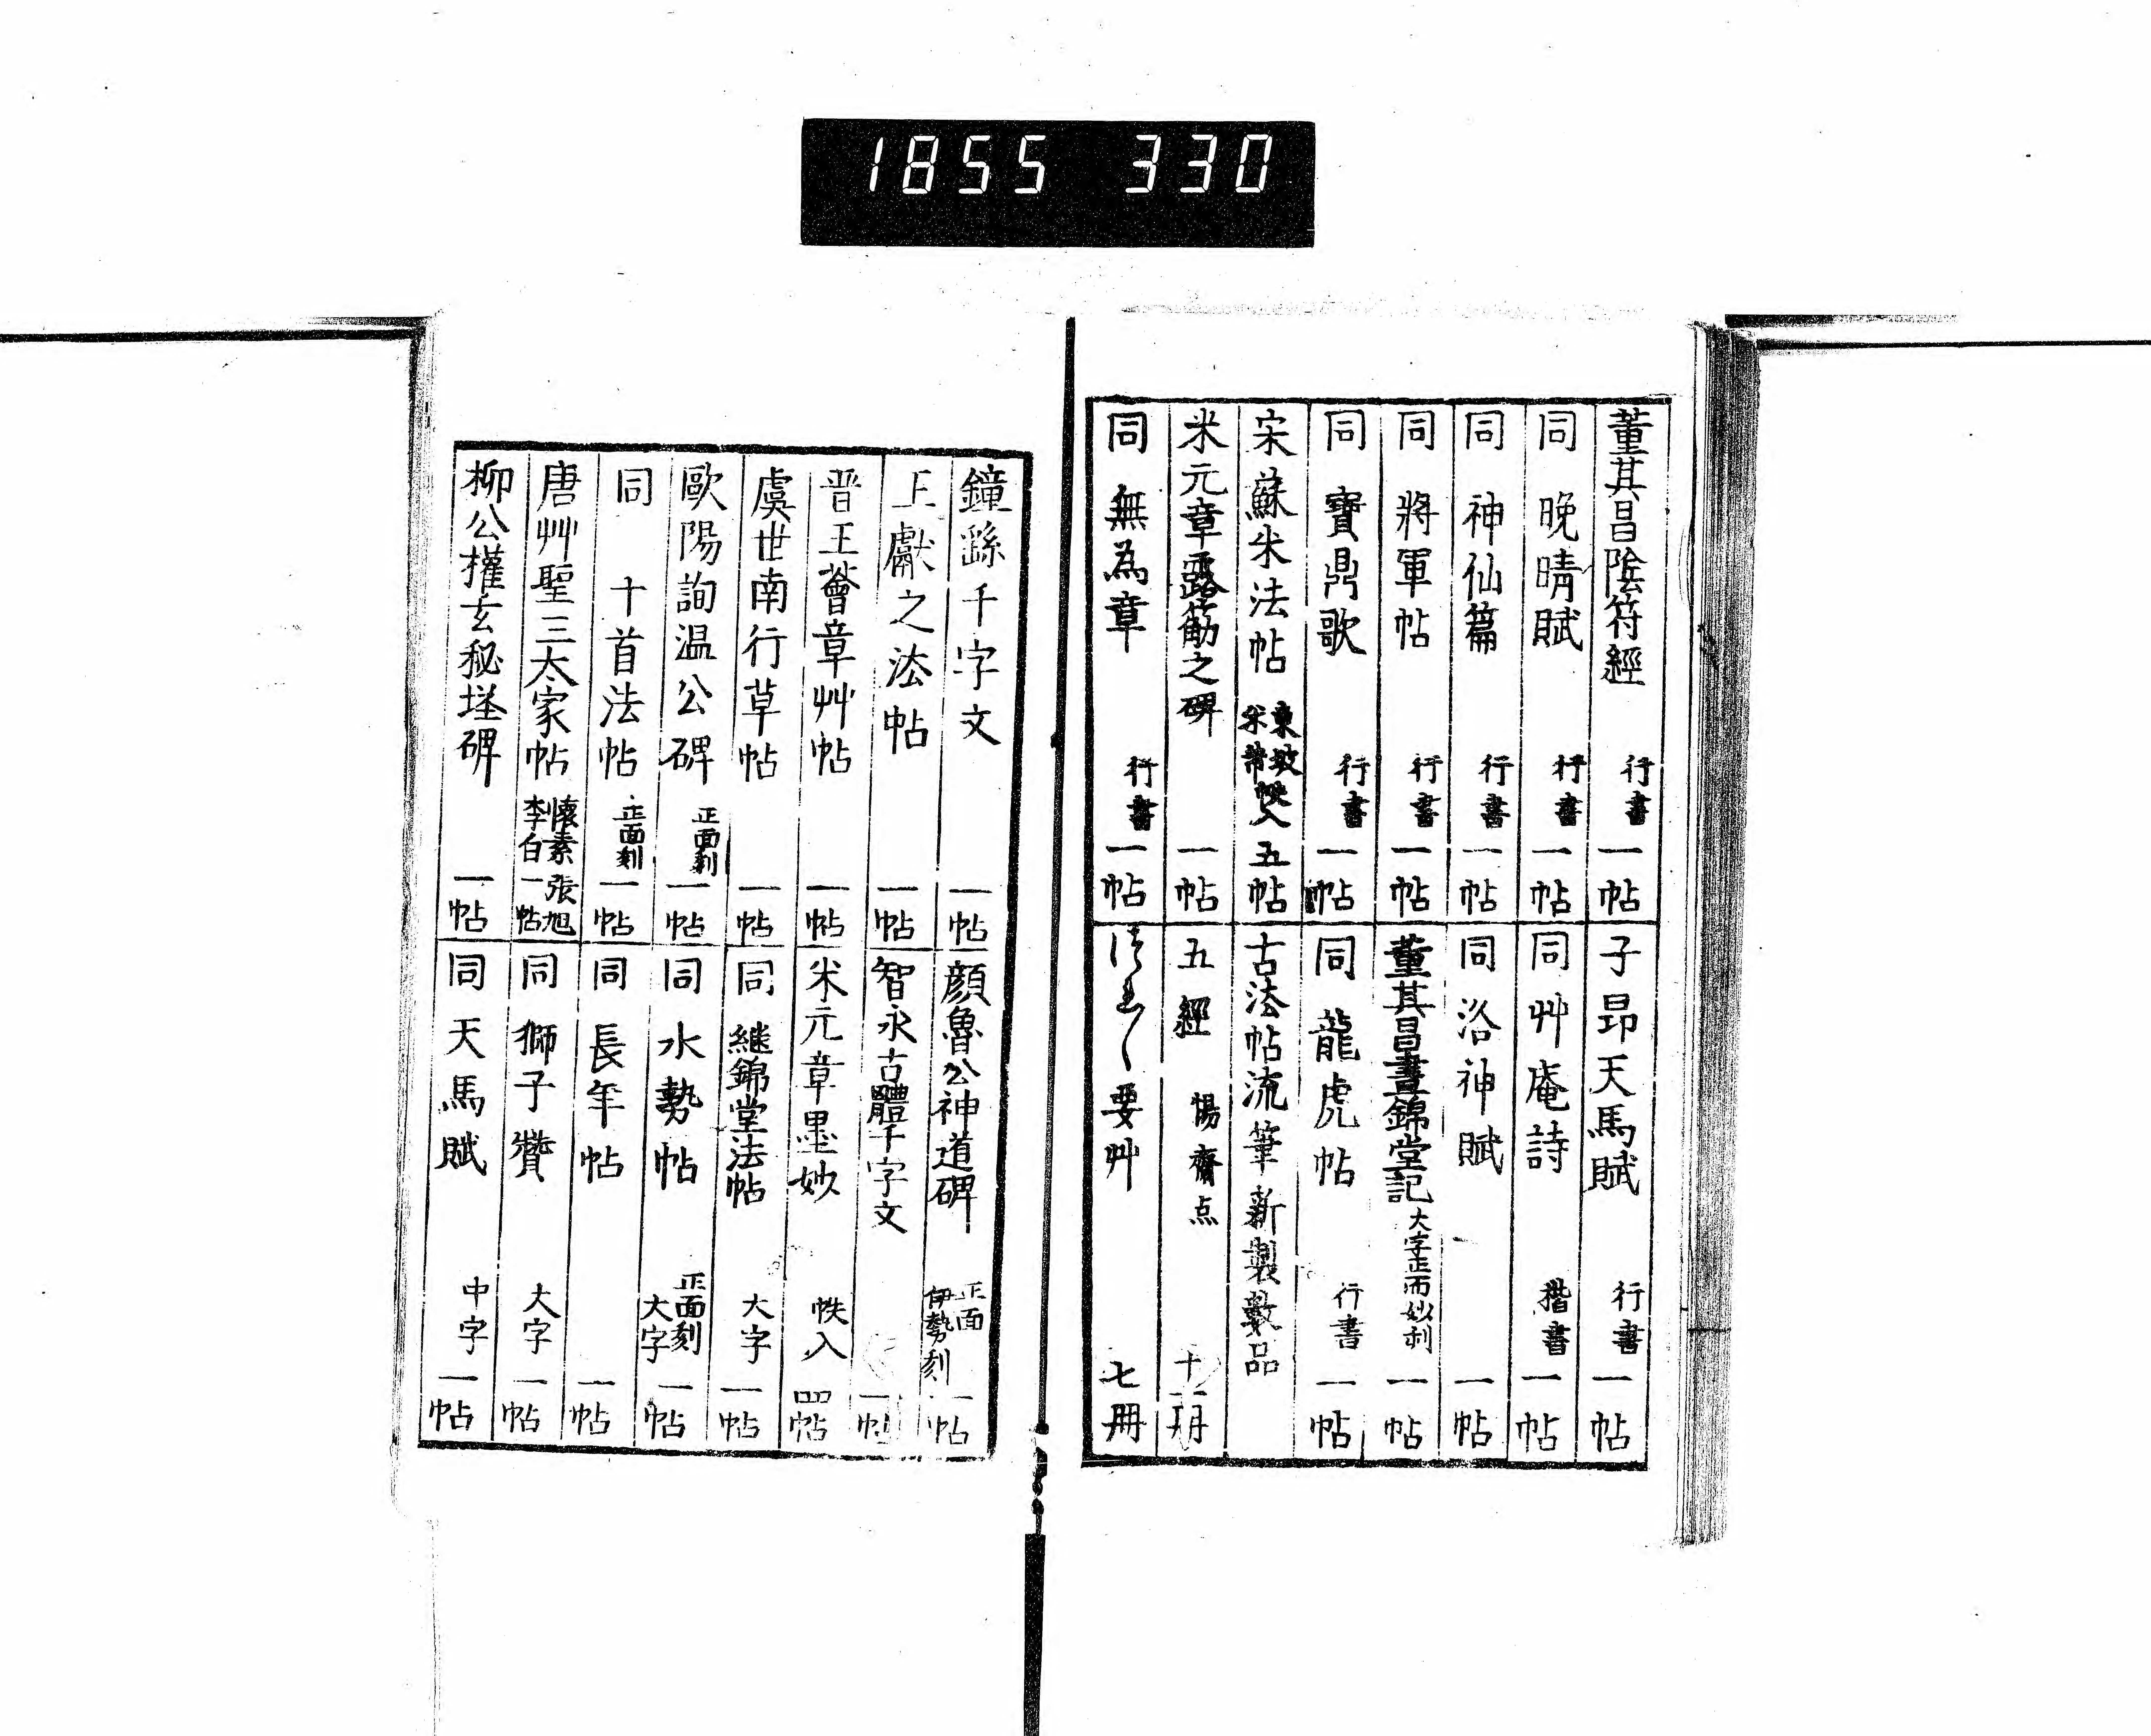 1855 330
董其昌陰符經 行書 一帖
同 晩晴賦 行書 一帖
同 神仙篇 行書 一帖
同 將軍帖 行書 一帖
同 寶鼎歌 行書 一帖
宋蘇米法帖 東坡 米芾 帙入 五帖
米元章露筋之碑 一帖
同 無為章 行書 一帖
子昂天馬賦 行書 一帖
同 艸庵詩 楷書 一帖
同 洛神賦 一帖
董其昌晝錦堂記 大字正面妙刻 一帖
同 龍虎帖 行書 一帖
古法帖流筆新製數品
五經 惕齋点 十一冊
要艸 七冊
鐘繇千字文 一帖
王獻之法帖 一帖
晋王薈章艸帖 一帖
虞世南行草帖 一帖
歐陽詢温公碑 正面刻 一帖
同 十首法帖 正面刻 一帖
唐艸聖三大家帖 懐素 張旭 李白 一帖
柳公權玄秘塔碑 一帖
顔魯公神道碑 正面 伊勢刻 一帖
智永古體千字文 一帖
米元章墨妙 帙入 四帖
同 継錦堂法帖 大字 一帖
同 水勢帖 正面刻 大字 一帖
同 長年帖 一帖
同 獅子贊 大字 一帖
同 天馬賦 中字 一帖